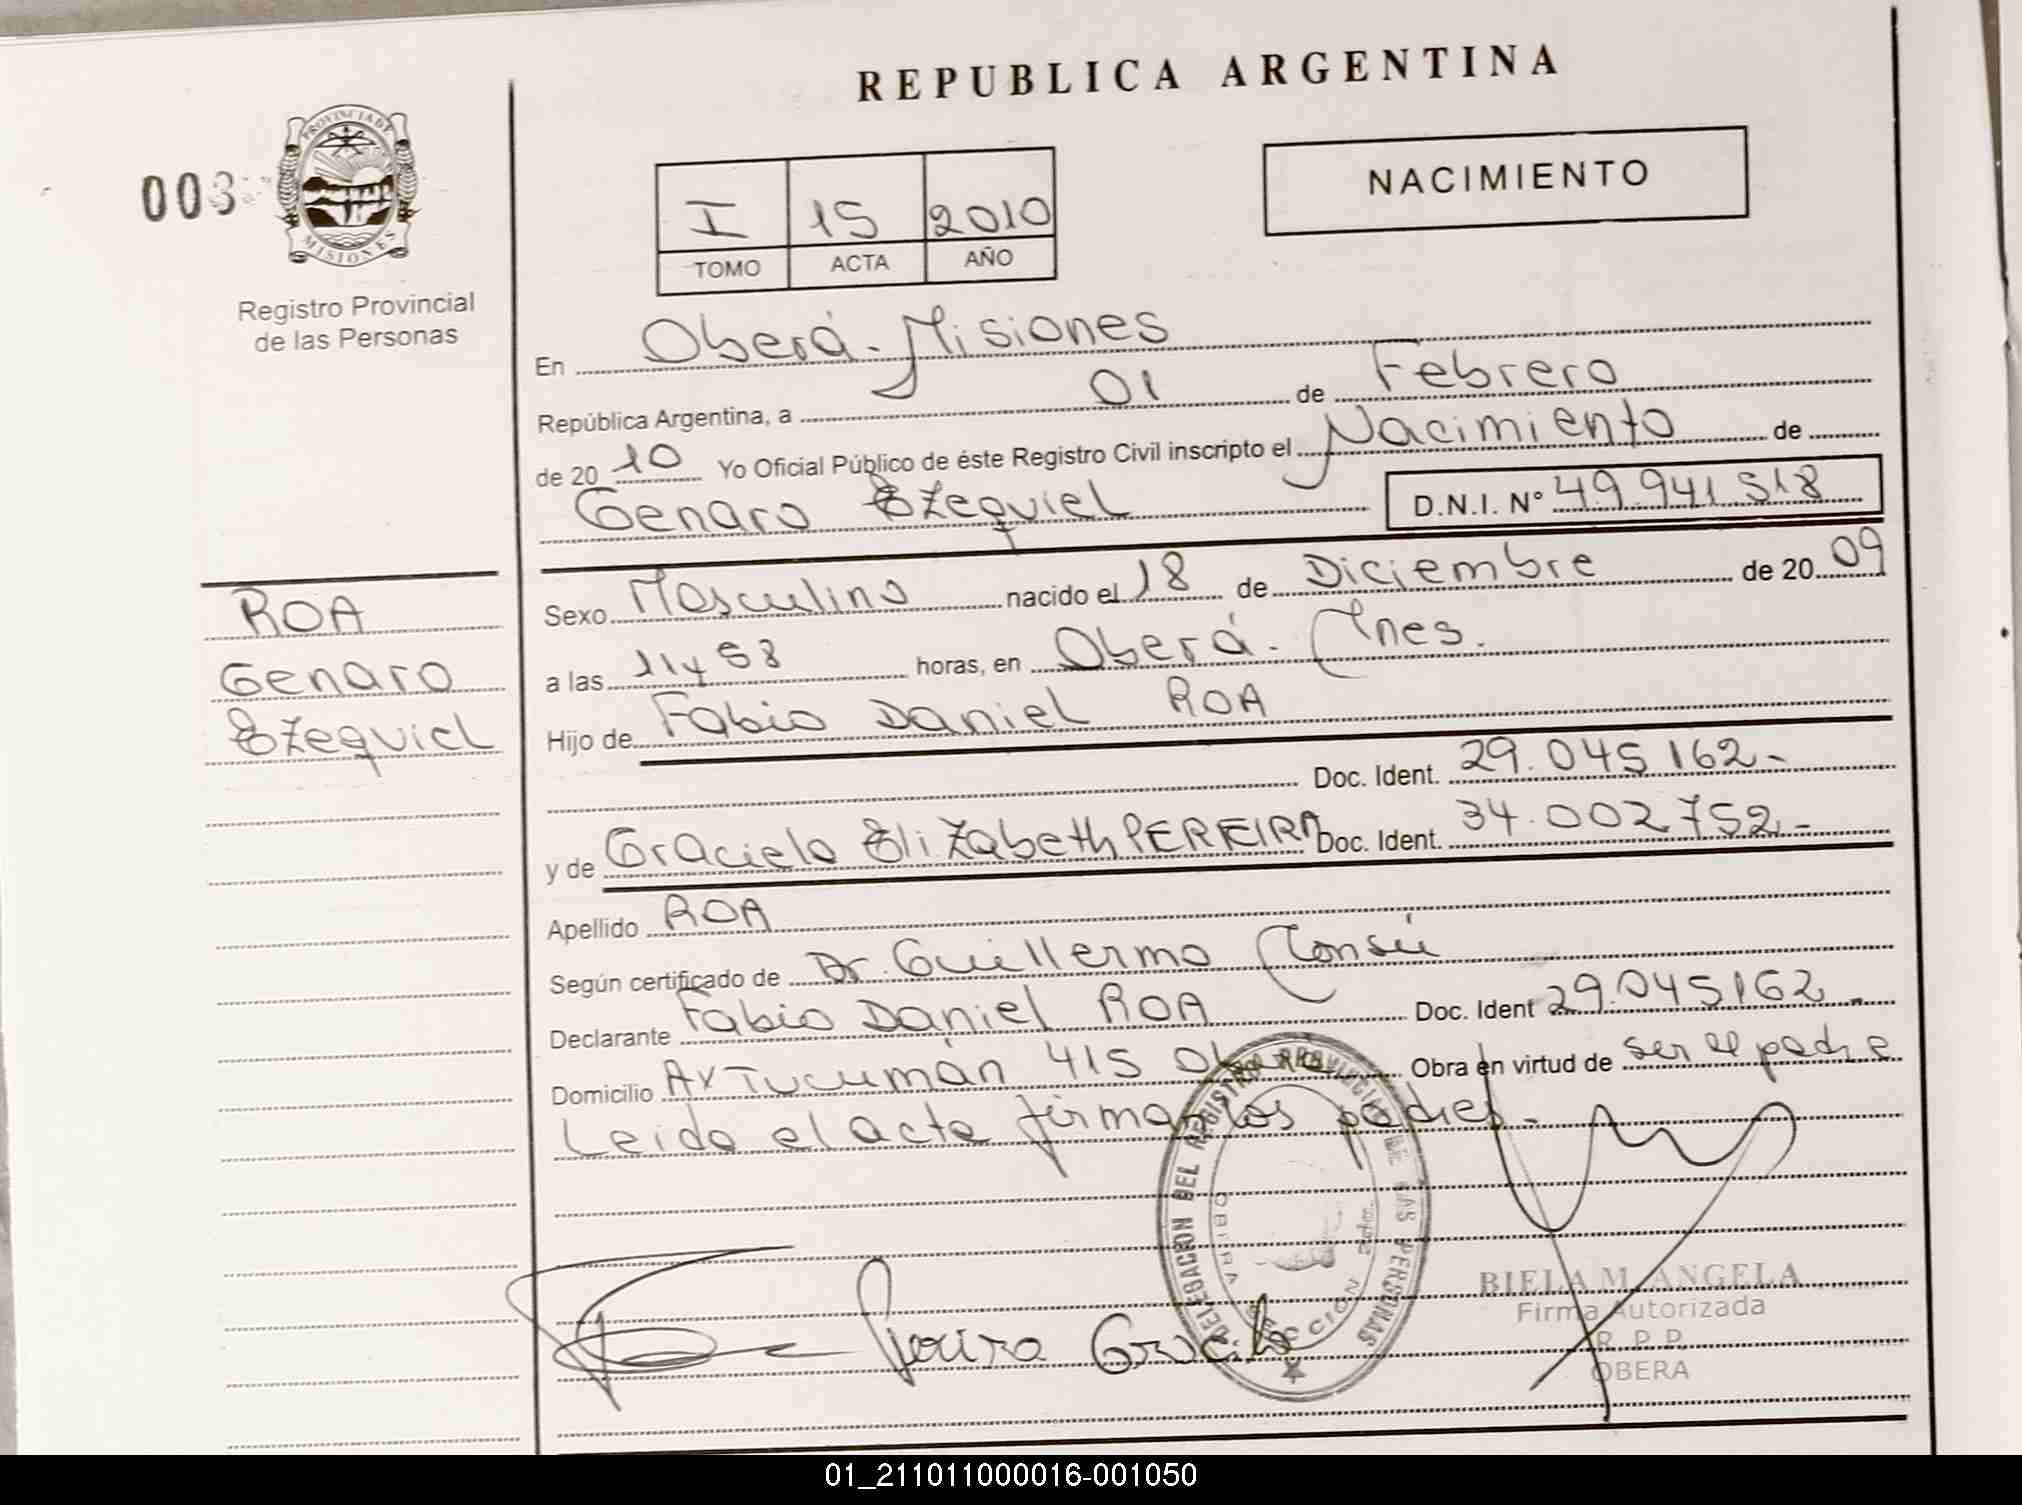 REPUBLICA ARGENTINA
003
PROVINCIA DE
MISIONES
Registro Provincial
de las Personas
I 15 2010
TOMO ACTA AÑO
NACIMIENTO
En Oberá - Misiones
República Argentina, a 01 de Febrero
de 20 10 Yo Oficial Público de éste Registro Civil inscripto el Nacimiento de
Genaro Ezequiel D.N.I. Nº 49.941.518
ROA
Genaro
Ezequiel
Sexo Masculino nacido el 18 de Diciembre de 20 09
a las 11y 58 horas, en Oberá - Mnes.
Hijo de Fabio Daniel ROA
Doc. Ident. 29.045.162-
y de Graciela Elizabeth PEREIRA Doc. Ident. 34.002.752-
Apellido ROA
Según certificado de Dr. Guillermo
Declarante Fabio Daniel ROA Doc. Ident 29.045.162-
Domicilio Av Tucumán 415 Oberá Obra en virtud de ser el padre
Leida el acta firman los padres.
DELEGACION DEL REGISTRO PROVINCIAL DE LAS PERSONAS
BIELA M. ANGELA
Firma Autorizada
R. P. P.
OBERA
Pereira Graciela
01_211011000016-001050